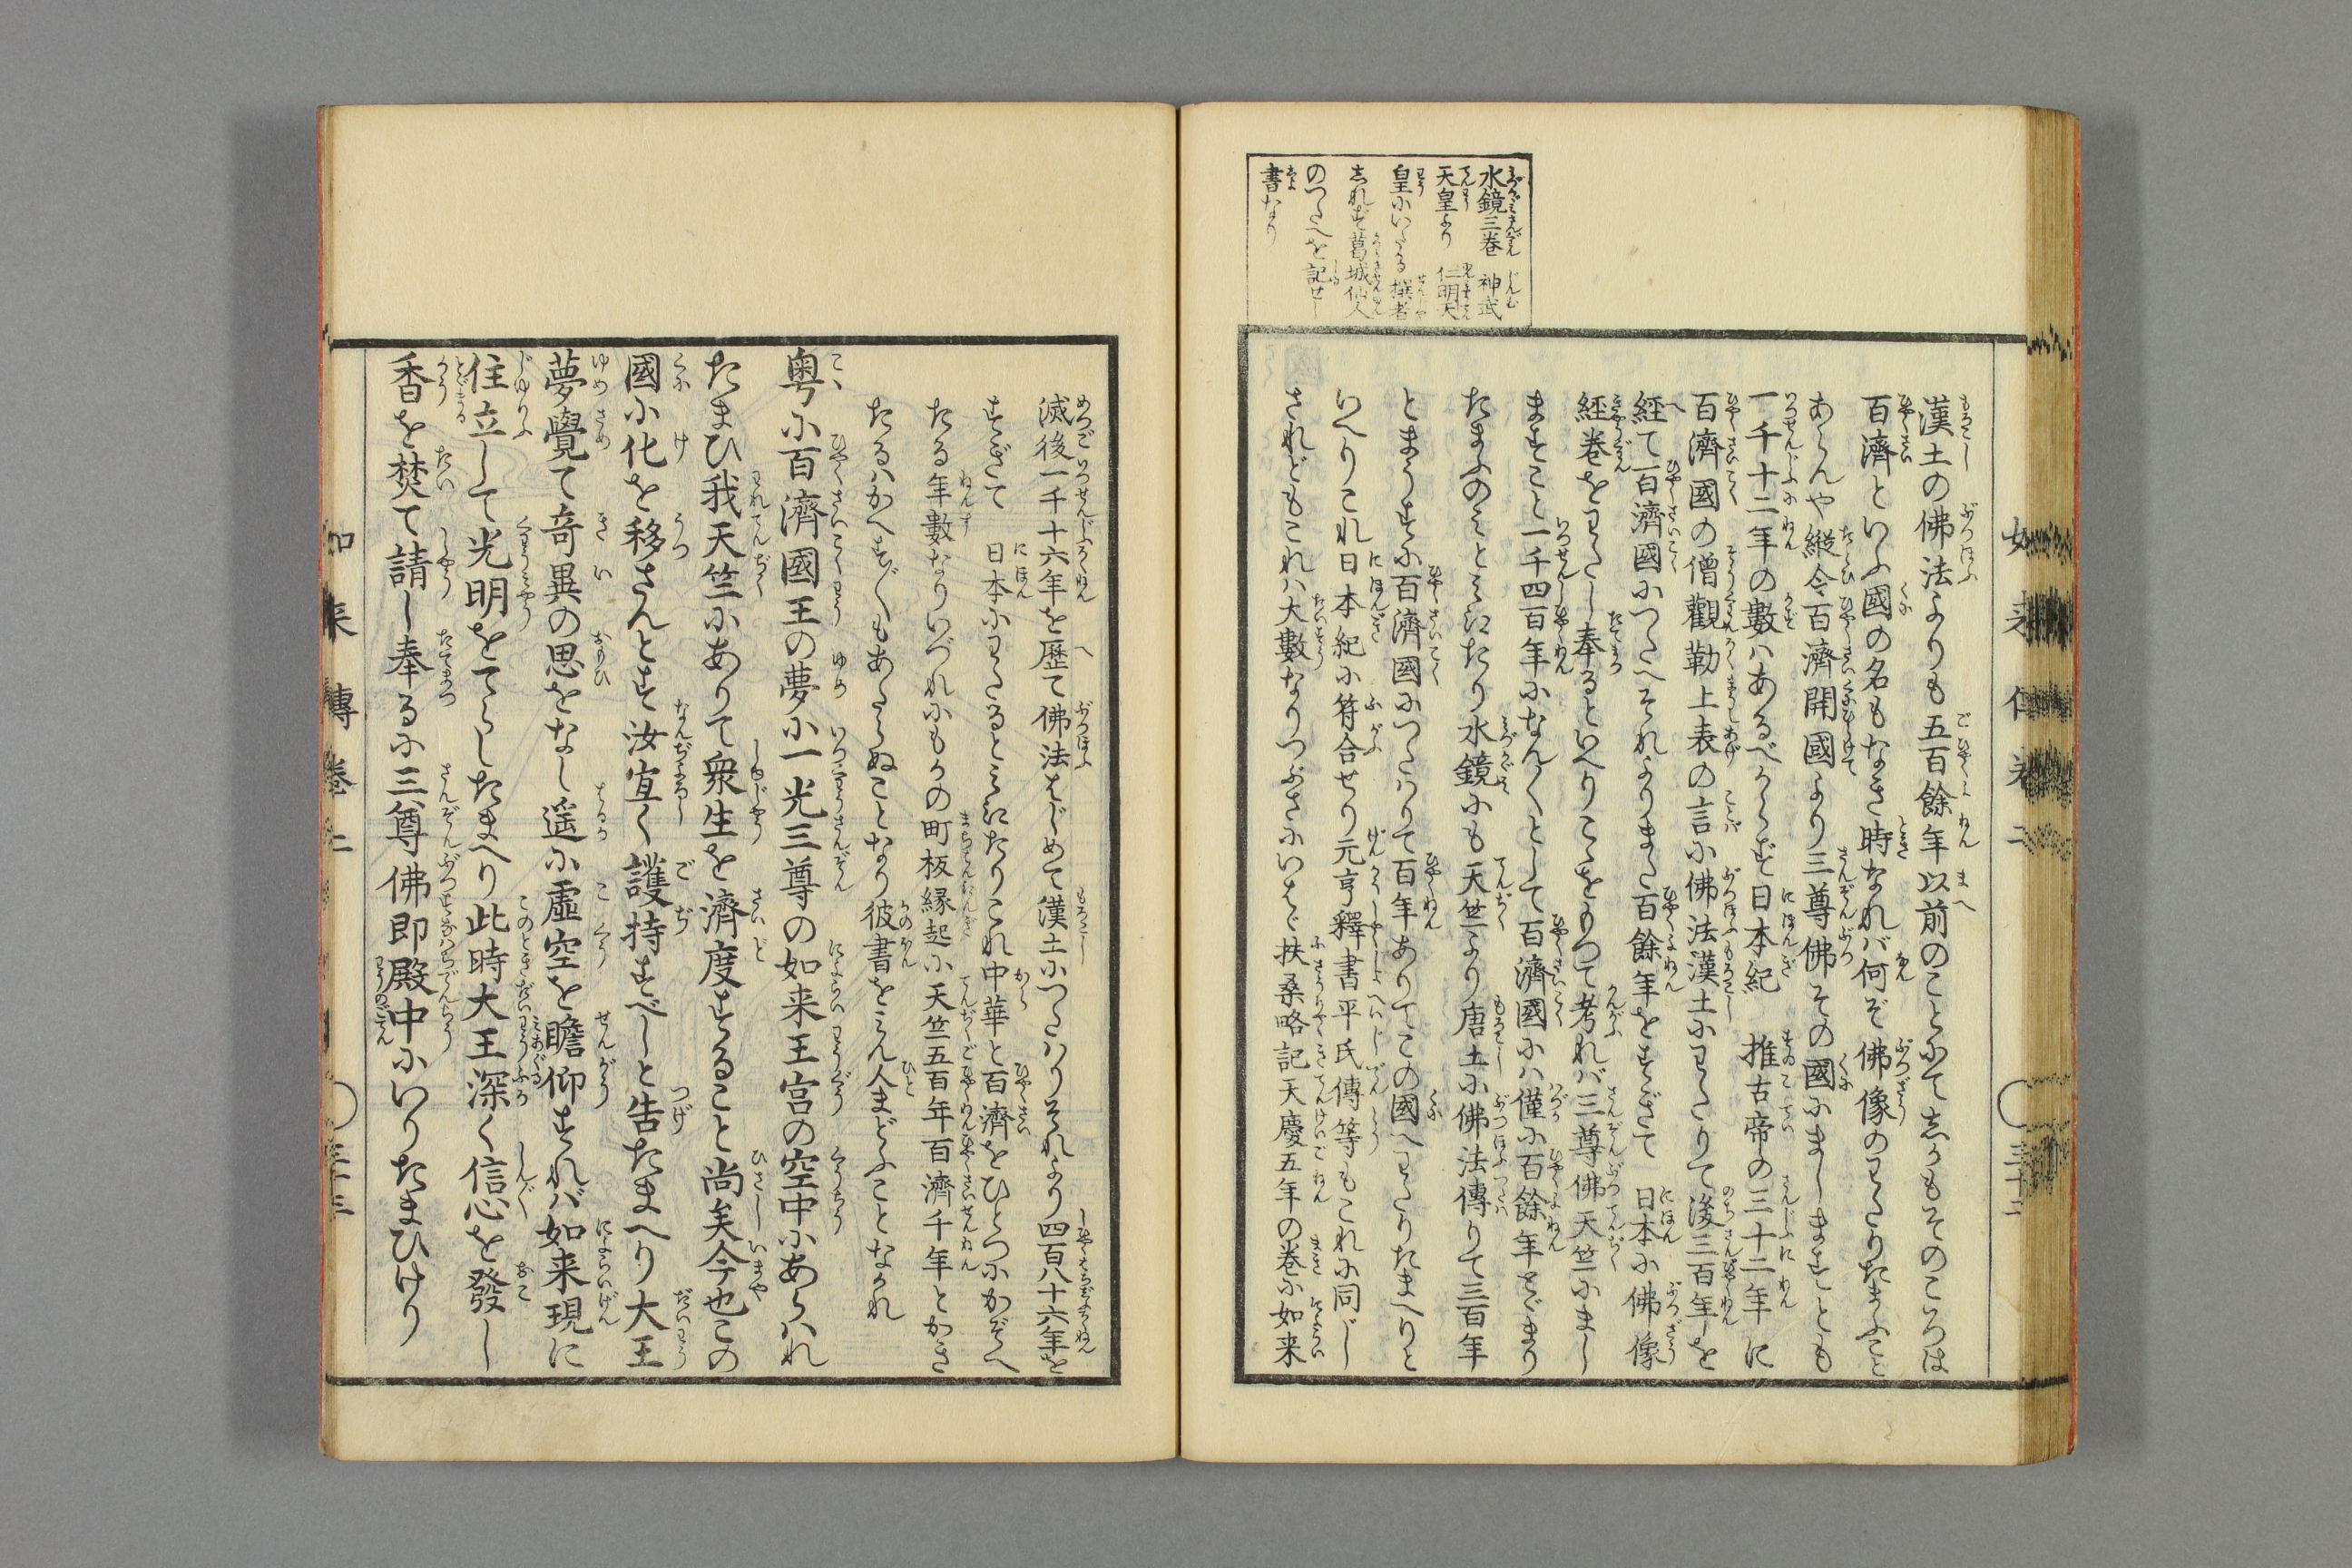 水鏡三巻 神武
天皇より 仁明天
皇にいたる 撰者
しれず葛城仙人
のつたへを記せし
書なり
漢土の佛法よりも五百餘年以前のことにてしかもそのころは
百濟といふ國の名もなき時なれバ何ぞ佛像のわたりたまふこと
あらんや縦令百濟開國より三尊佛その國にましますとも
一千十二年の數ハあるべからず日本紀 推古帝の三十二年に
百濟國の僧觀勒上表の言に佛法漢土にわたりて後三百年を
経て百濟國につたへそれよりまた百餘年をすぎて 日本に佛像
經巻をわたし奉るといへりこゝをもつて考れバ三尊佛天竺にまし
ますこと一千四百年になん〳〵として百濟國にハ僅に百餘年とゞまり
たまふのみとミえたり水鏡にも天竺より唐土に佛法傳りて三百年
とまうすに百濟國につたハりて百年ありてこの國へわたりたまへりと
いへりこれ日本紀に符合せり元亨釋書平氏傳等もこれに同じ
されどもこれハ大數なりつぶさにいはゞ扶桑略記天慶五年の巻に如来
如来傳巻二 三十二
滅後一千十六年を歴て佛法はじめて漢土につたハりそれより四百八十六年を
すぎて 日本にわたるとミえたりこれ中華と百濟をひとつにかぞへ
たる年數なりいづれにもかの町板縁起に天竺五百年百濟千年とかき
たるハかへす〴〵もあたらぬことなり彼書をミん人まどふことなかれ
粤に百濟國王の夢に一光三尊の如来王宮の空中にあらハれ
たまひ我天竺にありて衆生を濟度すること尚矣今也この
國に化を移さんとす汝宜く護持すべしと告たまへり大王
夢覺て奇異の思をなし遥に虚空を瞻仰すれバ如来現に
住立して光明をてらしたまへり此時大王深く信心を發し
香を焚て請し奉るに三尊佛即殿中にいりたまひけり
如来傳巻二 三十三